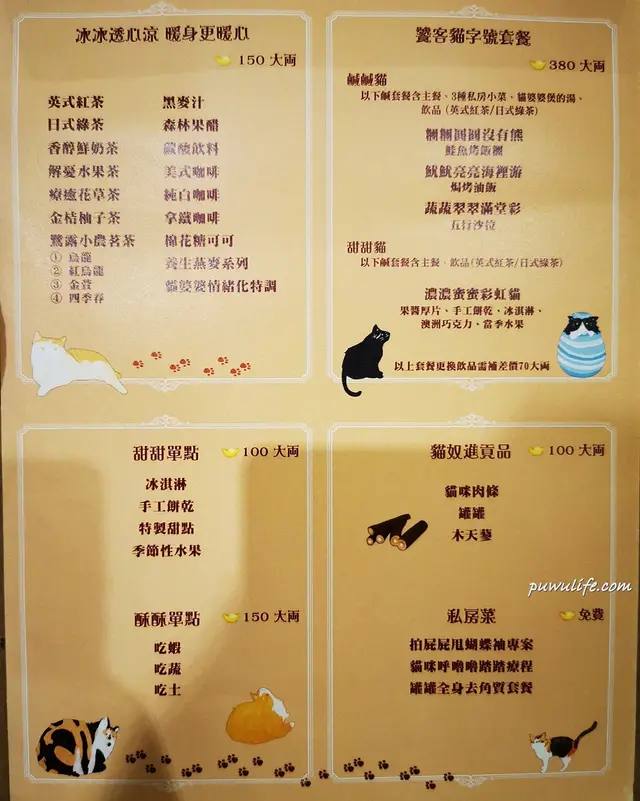 冰冰透心涼 暖身更暖心
150 大両
英式紅茶
日式綠茶
香醇鮮奶茶
解憂水果茶
療癒花草茶
金桔柚子茶
鶖露小農茗茶
① 烏龍
② 紅烏龍
③ 金萱
④ 四季春
黑麥汁
森林果醋
碳酸飲料
美式咖啡
純白咖啡
拿鐵咖啡
棉花糖可可
養生燕麥系列
貓婆婆情緒化特調
饕客貓字號套餐
380 大両
鹹鹹貓
以下鹹套餐含主餐、3種私房小菜、貓婆婆煲的湯、
飲品 (英式紅茶/日式綠茶)
糰糰圓圓沒有熊
鮭魚烤飯糰
魷魷亮亮海裡游
焗烤油飯
蔬蔬翠翠滿堂彩
五行沙拉
甜甜貓
以下鹹套餐含主餐、飲品(英式紅茶/日式綠茶)
濃濃蜜蜜彩虹貓
果醬厚片、手工餅乾、冰淇淋、
澳洲巧克力、當季水果
以上套餐更換飲品需補差價70大両
甜甜單點
100 大両
冰淇淋
手工餅乾
特製甜點
季節性水果
酥酥單點
150 大両
吃蝦
吃蔬
吃土
貓奴進貢品
100 大両
貓咪肉條
罐罐
木天蓼
puwulife.com
私房菜
免費
拍屁屁甩蝴蝶袖專案
貓咪呼嚕嚕踏踏療程
罐罐全身去角質套餐